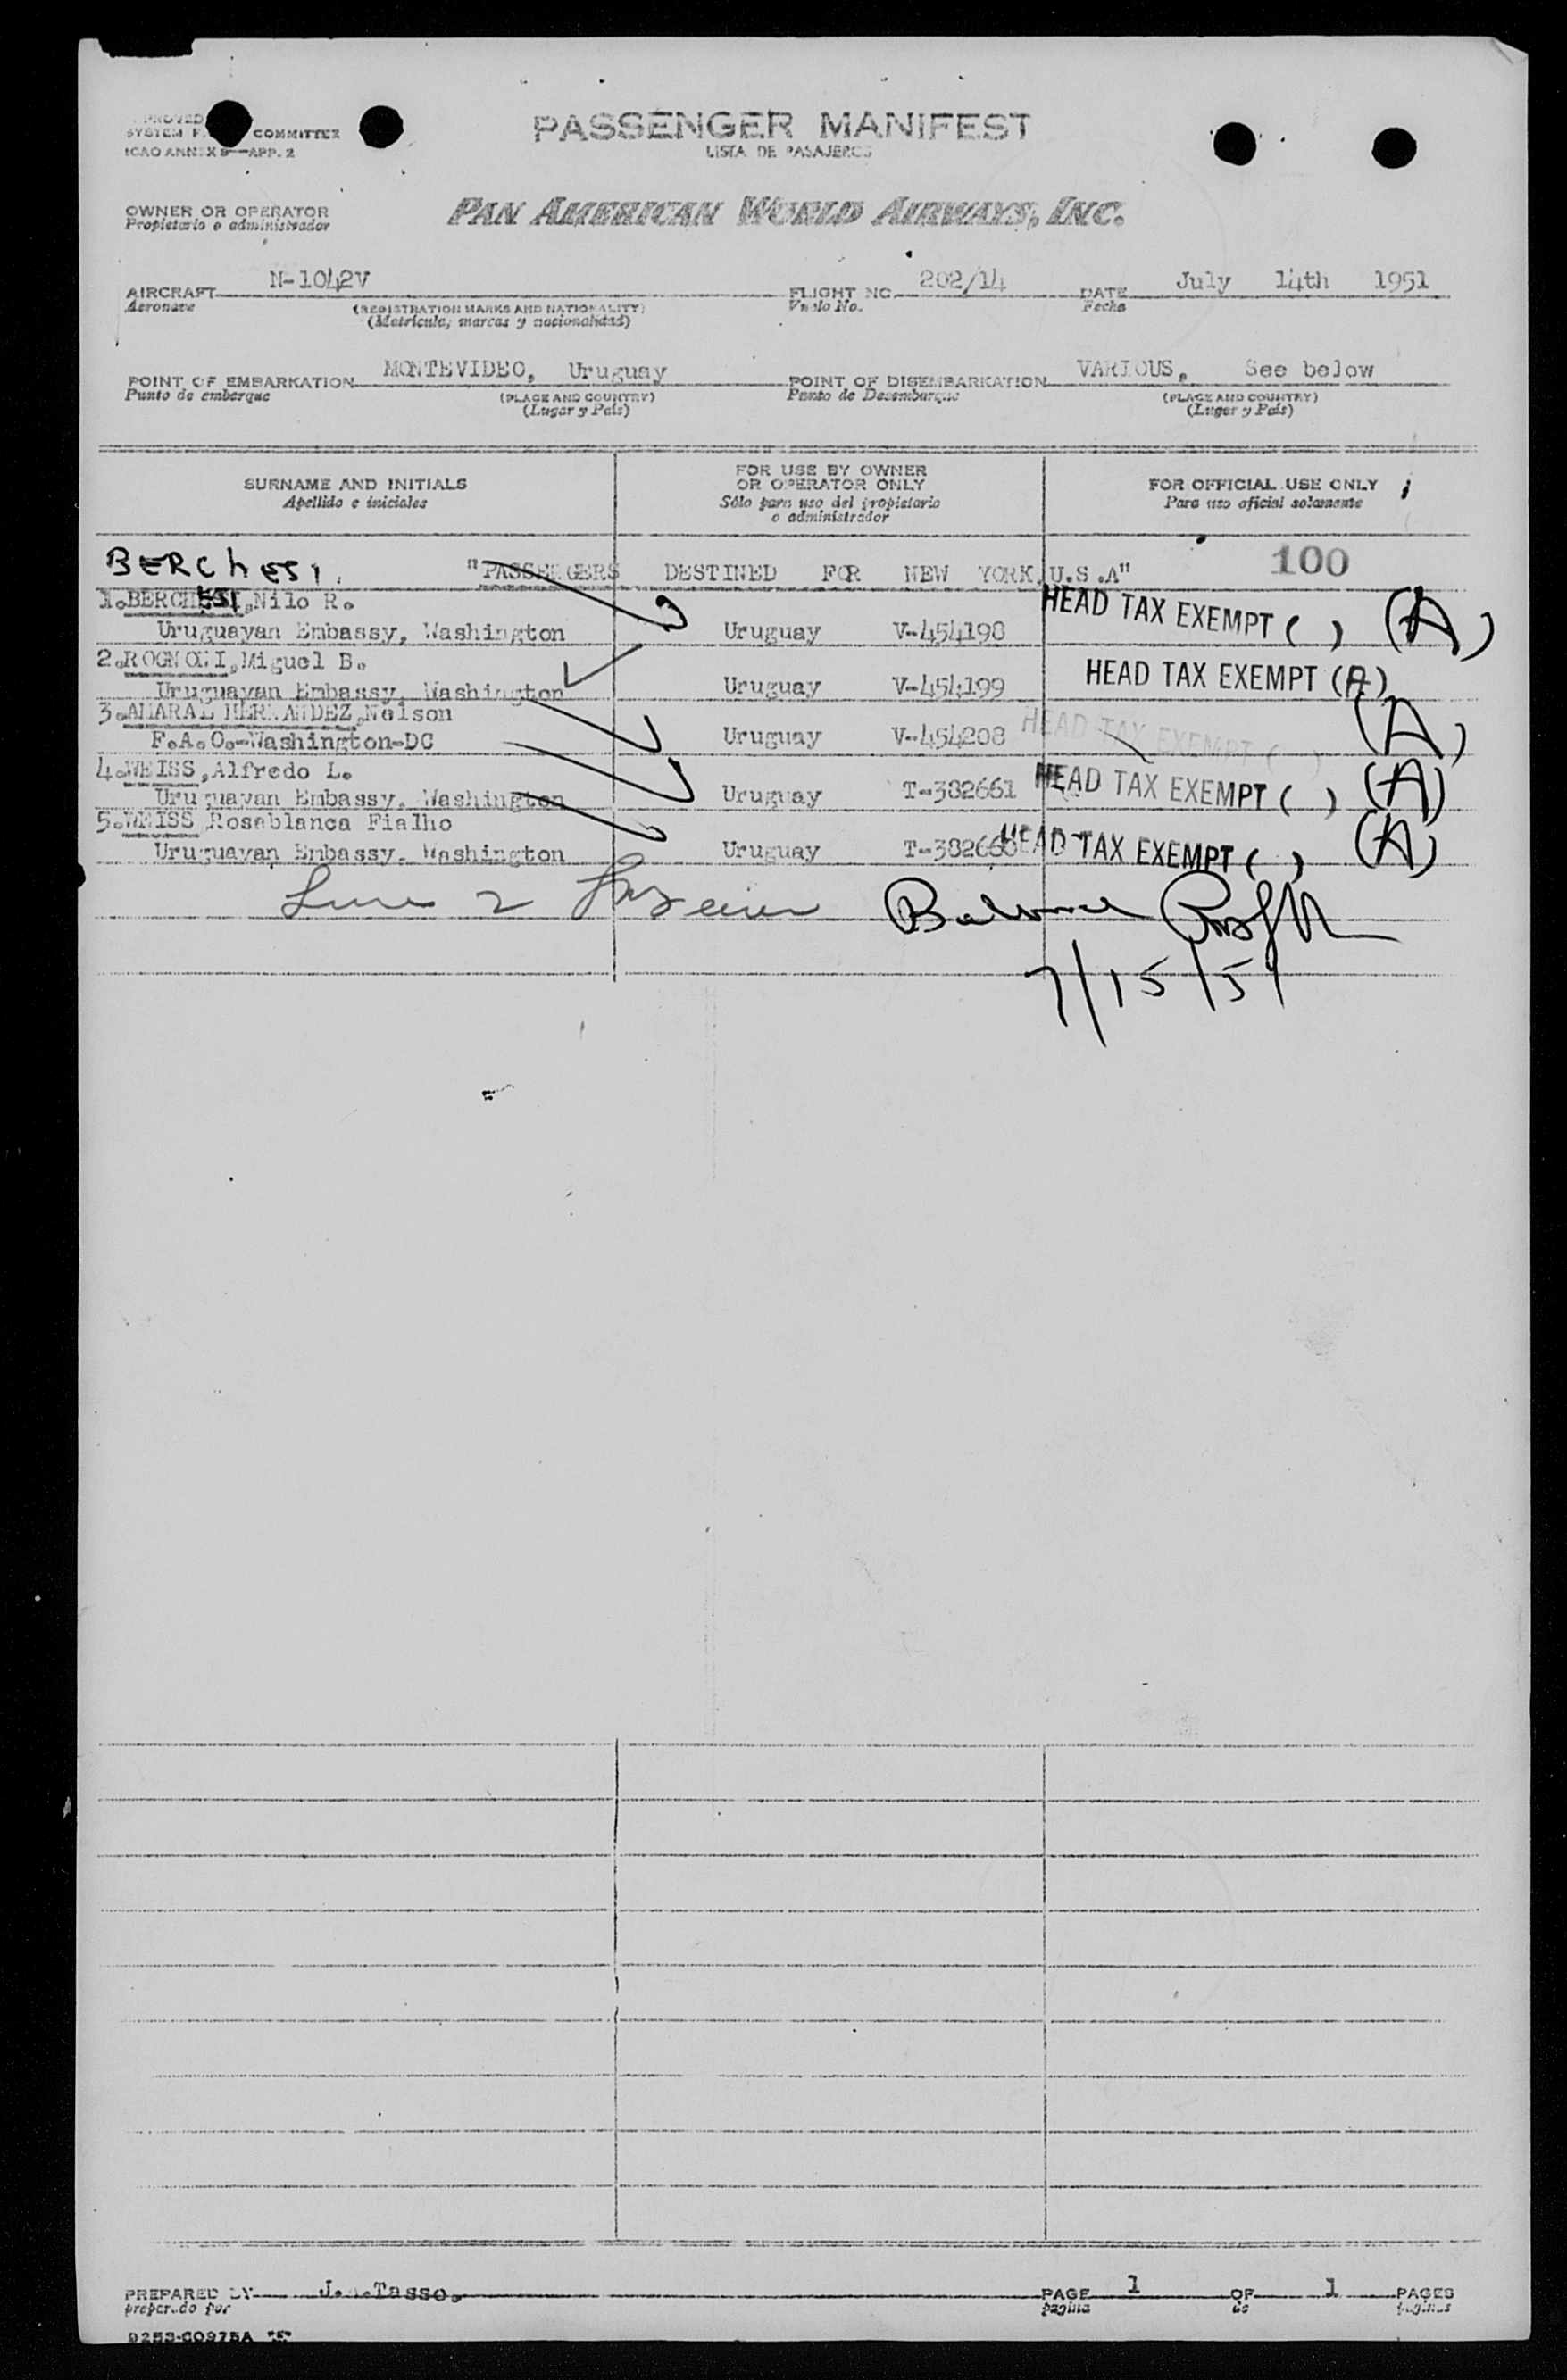 COMMITTEE
ICAO ANNEX 9—APP. 2
PASSENGER MANIFEST
LISTA DE PASAJEROS
OWNER OR OPERATOR
Propietario o administrador
PAN AMERICAN WORLD AIRWAYS, INC.
AIRCRAFT N-1042V FLIGHT NO. 202/14 DATE July 14th 1951
Aeronave (REGISTRATION MARKS AND NATIONALITY) Vuelo No. Fecha
(Matricula, marcas y nacionalidad)
POINT OF EMBARKATION MONTEVIDEO, Uruguay POINT OF DISEMBARKATION VARIOUS, See below
Punto de embarque (PLACE AND COUNTRY) Punto de Desembarque (PLACE AND COUNTRY)
(Lugar y País) (Lugar y País)
SURNAME AND INITIALS
Apellido e iniciales
FOR USE BY OWNER
OR OPERATOR ONLY
Sólo para uso del propietario
o administrador
FOR OFFICIAL USE ONLY
Para uso oficial solamente
BERChESI. "PASSENGERS DESTINED FOR NEW YORK,U.S.A" 100
1.BERCHESI,Nilo R.
Uruguayan Embassy, Washington Uruguay V-454198 HEAD TAX EXEMPT ( ) (A)
2.ROGNONI,Miguel B.
Uruguayan Embassy, Washington Uruguay V-454199 HEAD TAX EXEMPT (A)
3.AMARAL HERNANDEZ,Nelson
F.A.O.-Washington-DC Uruguay V-454208 HEAD TAX EXEMPT ( ) (A)
4.WEISS,Alfredo L.
Uruguayan Embassy, Washington Uruguay T-382661 HEAD TAX EXEMPT ( ) (A)
5.WEISS Rosablanca Fialho
Uruguayan Embassy, Washington Uruguay T-382660 HEAD TAX EXEMPT ( ) (A)
7/15/51
PREPARED BY Tasso. PAGE 1 OF 1 PAGES
preparado por pagina de paginas